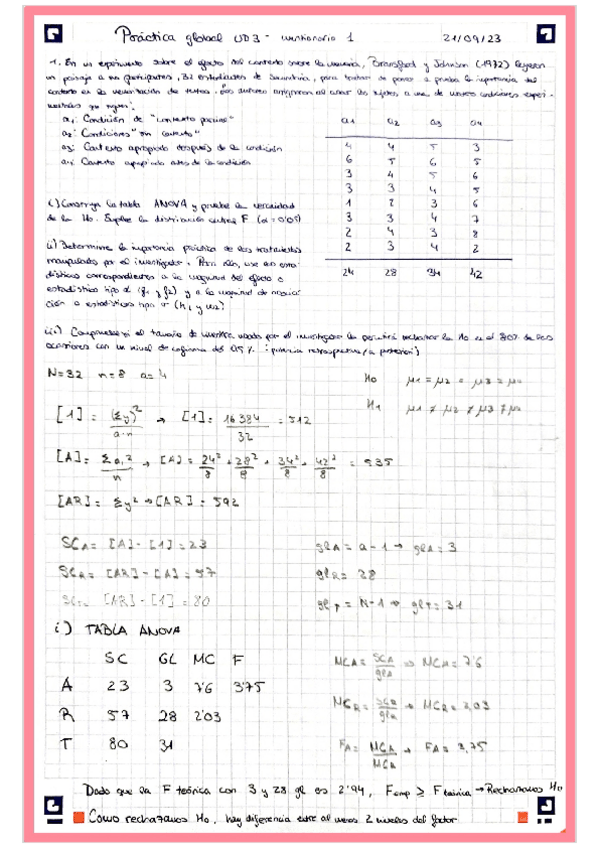 Práctica global UD3 - cuestionario 1 21/09/23
1. En un experimento sobre el efecto del contexto sobre la memoria, Bransford y Johnson (1972) leyeron
un pasaje a sus participantes, 32 estudiantes de Secundaria, para tratar de poner a prueba la importancia del
contexto en la de textos. Los autores asignaron al azar los sujetos a una de cuatro condiciones experi-
mentales que siguen:
a1: Condición de "contexto parcial"
a2: Condiciones "sin contexto"
a3: Contexto apropiado después de la condición
a4: Contexto apropiado antes de la condición
a1 a2 a3 a4
4 4 5 3
6 5 6 5
3 4 5 6
3 3 4 5
1 2 3 6
3 3 4 7
2 4 3 8
2 3 4 2
24 28 34 42
i) Construya la tabla ANOVA y pruebe la veracidad
de la Ho. la distribución F (α=0'05)
ii) Determine la importancia práctica de los tratamientos
manipulados por el investigador. Para ello, use los esta-
dísticos correspondientes a la magnitud del efecto o
estadísticos tipo d (f, y f2) y a la magnitud de asocia-
ción o estadísticos tipo r
iii) Compruebe si el tamaño de muestra usado por el investigador le permitirá rechazar la Ho en el 80% de las
ocasiones con un nivel de confianza del 95%. (potencia retrospectiva/a posteriori)
N=32 n=8 a=4
Ho μ1 = μ2 = μ3 = μ4
H1 μ1 ≠ μ2 ≠ μ3 ≠ μ4
[1] = (Σy)² / a·n → [1] = 16384 / 32 = 512
[A] = Σa1² / n → [A] = 24²/8 + 28²/8 + 34²/8 + 42²/8 = 535
[AR] = Σy² → [AR] = 592
SCA = [A] - [1] = 23 glA = a - 1 → glA = 3
SCR = [AR] - [A] = 57 glR = 28
SCT = [AR] - [1] = 80 glT = N-1 → glT = 31
i) TABLA ANOVA
SC GL MC F
A 23 3 7'6 3'75
R 57 28 2'03
T 80 31
MCA = SCA / glA ⇒ MCA = 7'6
MCR = SCR / glR ⇒ MCR = 2,03
FA = MCA / MCR ⇒ FA = 3,75
Dado que la F teórica con 3 y 28 gl es 2'94, Femp ≥ Fteórica → Rechazamos Ho
Como rechazamos Ho, hay diferencia entre al menos 2 niveles del factor